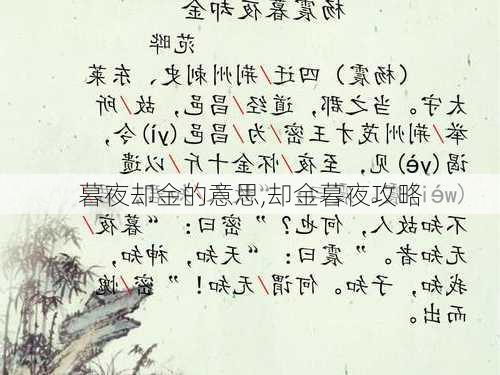 杨震暮夜却金
范晔
（杨震）四迁/荆州刺史、东莱
太守。当之郡，道经/昌邑，故/所
举/荆州茂才王密/为/昌邑(yì)令，
谒(yè)见，至夜/怀金十斤/以遗
(wèi)
暮夜却金的意思,却金暮夜攻略
不知故人，何也？”密曰：“暮夜/
无知者。”震曰：“天知，神知，
我知，子知。何谓/无知！”密/愧
而出。